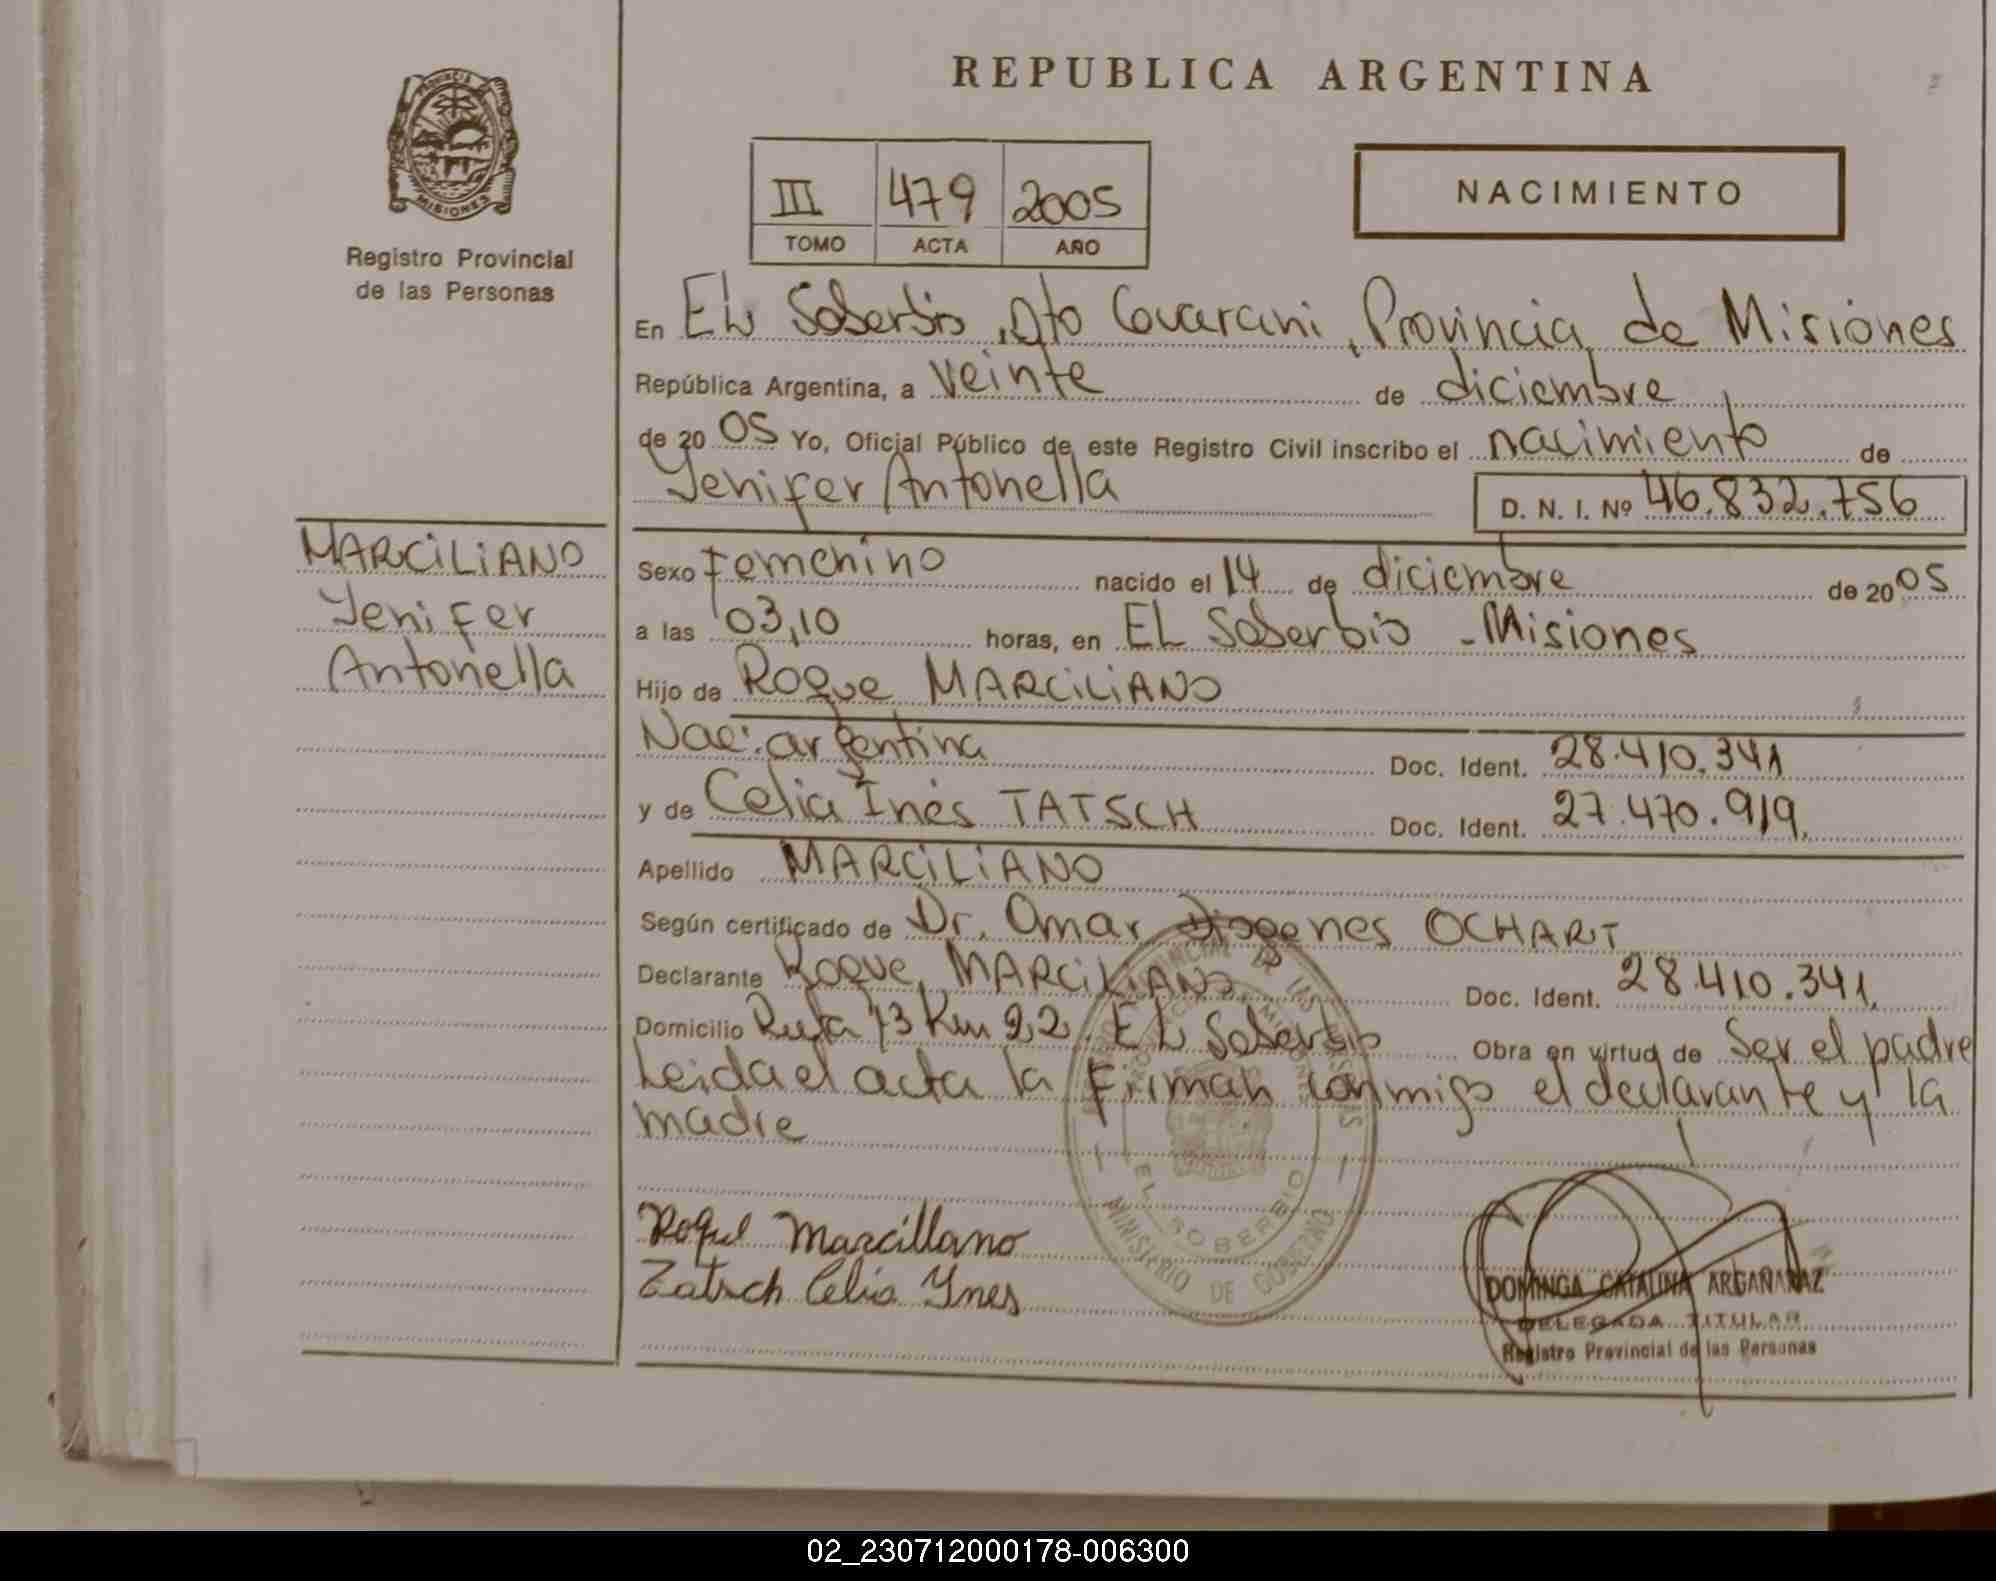 REPUBLICA ARGENTINA
PROVINCIA
MISIONES
Registro Provincial
de las Personas
III 479 2005
TOMO ACTA AÑO
NACIMIENTO
En EL Soberbio, Dto Guarani, Provincia de Misiones
República Argentina, a veinte de diciembre
de 20 05 Yo, Oficial Público de este Registro Civil inscribo el nacimiento de
Yenifer Antonella D. N. I. Nº 46.832.756
MARCILIANO
Yenifer
Antonella
Sexo Femenino nacido el 14 de diciembre de 20 05
a las 03,10 horas, en EL Soberbio - Misiones
Hijo de Roque MARCILIANO
Nac: argentina Doc. Ident. 28.410.341
y de Celia Inés TATSCH Doc. Ident. 27.470.919.
Apellido MARCILIANO
Según certificado de Dr. Omar Diogenes OCHART
Declarante Roque MARCILIANO Doc. Ident. 28.410.341.
Domicilio Ruta 13 Km 22. EL Soberbio Obra en virtud de Ser el padre
Leida el acta la Firman conmigo el declarante y la
madre
EL SOBERBIO
MINISTERIO DE GOBIERNO
Roque Marcillano
Tatsch Celia Ynes
DOMINGA CATALINA ARGAÑARAZ
DELEGADA TITULAR
Registro Provincial de las Personas
02_230712000178-006300